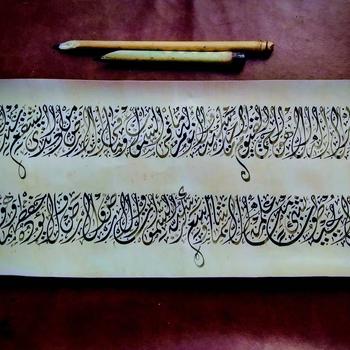 لا إله إلا هو الحي القيوم لا تأخذه سنة ولا نوم له ما في السموات وما في الأرض من ذا الذي يشفع
يحيطون بشيء من علمه إلا بما شاء وسع كرسيه السموات والأرض ولا يؤوده حفظهما